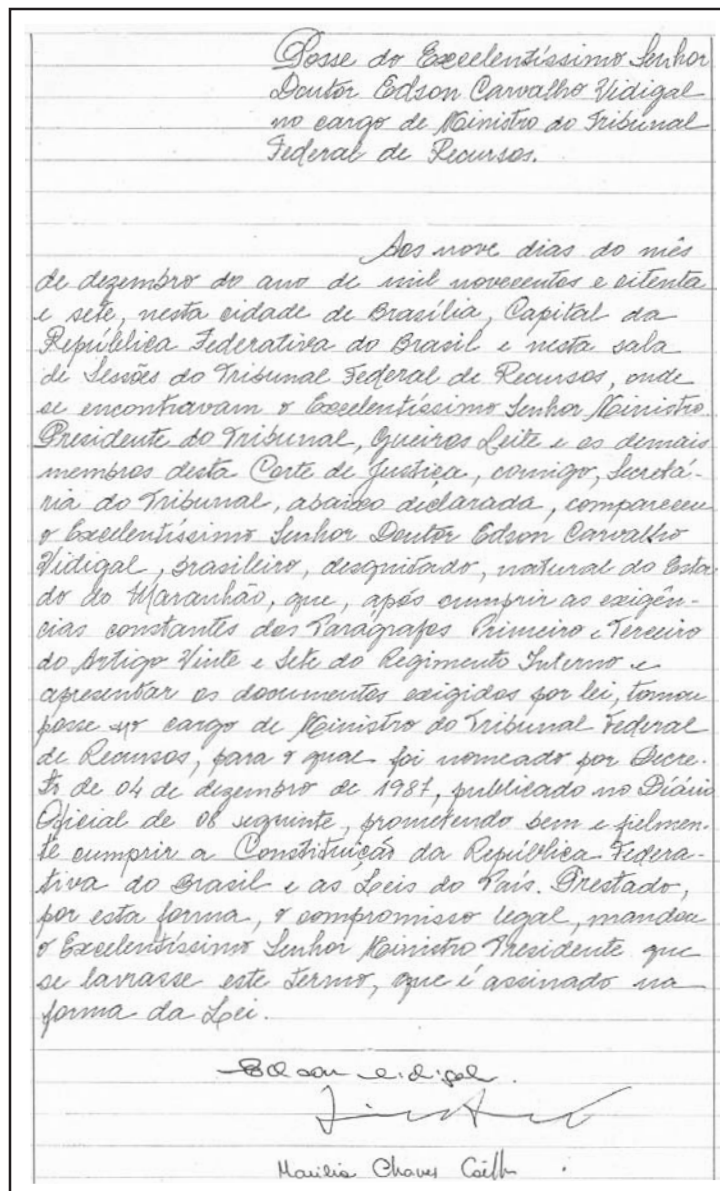 Posse do Excelentíssimo Senhor
Doutor Edson Carvalho Vidigal
no cargo de Ministro do Tribunal
Federal de Recursos.
Aos nove dias do mês
de dezembro do ano de mil novecentos e oitenta
e sete, nesta cidade de Brasília, Capital da
República Federativa do Brasil e nesta sala
de Sessões do Tribunal Federal de Recursos, onde
se encontravam o Excelentíssimo Senhor Ministro
Presidente do Tribunal, Gueiros Leite e os demais
membros desta Corte de Justiça, comigo, Secretá-
ria do Tribunal, abaixo declarada, compareceu
o Excelentíssimo Senhor Doutor Edson Carvalho
Vidigal, brasileiro, desquitado, natural do Esta-
do do Maranhão, que, após cumprir as exigên-
cias constantes dos Parágrafos Primeiro e Terceiro
do Artigo Vinte e Sete do Regimento Interno e
apresentar os documentos exigidos por lei, tomou
posse no cargo de Ministro do Tribunal Federal
de Recursos, para o qual foi nomeado por Decre-
to de 04 de dezembro de 1987, publicado no Diário
Oficial de 08 seguinte, prometendo bem e fielmen-
te cumprir a Constituição da República Federa-
tiva do Brasil e as Leis do País. Prestado,
por esta forma, o compromisso legal, mandou
o Excelentíssimo Senhor Ministro Presidente que
se lavrasse este termo, que é assinado na
forma da Lei.
Edson Vidigal.
Marilia Chaves Coelho